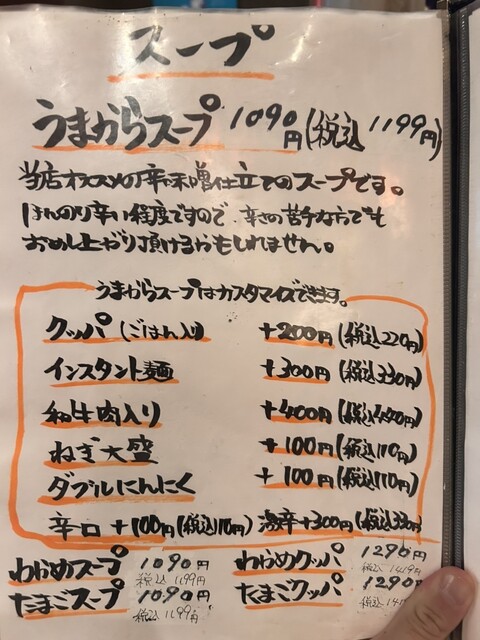 スープ
うまからスープ 1090円(税込1199円)
当店オススメの辛味噌仕立てのスープです。
ほんのり辛い程度ですので、辛さの苦手な方でも
おめし上がり頂けるかもしれません。
うまからスープはカスタマイズできます。
クッパ(ごはん入り) +200円(税込220円)
インスタント麺 +300円(税込330円)
和牛肉入り +400円(税込440円)
ねぎ大盛 +100円(税込110円)
ダブルにんにく +100円(税込110円)
辛口 +100円(税込110円) 激辛+300円(税込330円)
わかめスープ 1090円 わかめクッパ 1290円
税込1199円 税込1419円
たまごスープ 1090円 たまごクッパ 1290
税込1199円 税込